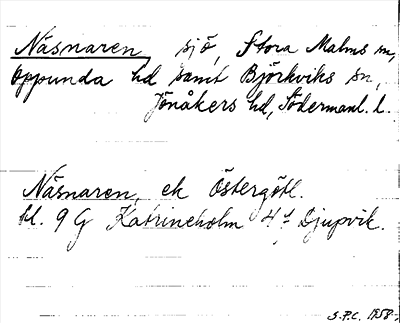 Näsnaren sjö, Stora Malms sn,
Oppunda hd samt Björkviks sn,
Jönåkers hd, Södermanl. l.
Näsnaren, ek Östergötl.
bl. 9 G Katrineholm 4d Djupvik.
S.P.C. 1958.